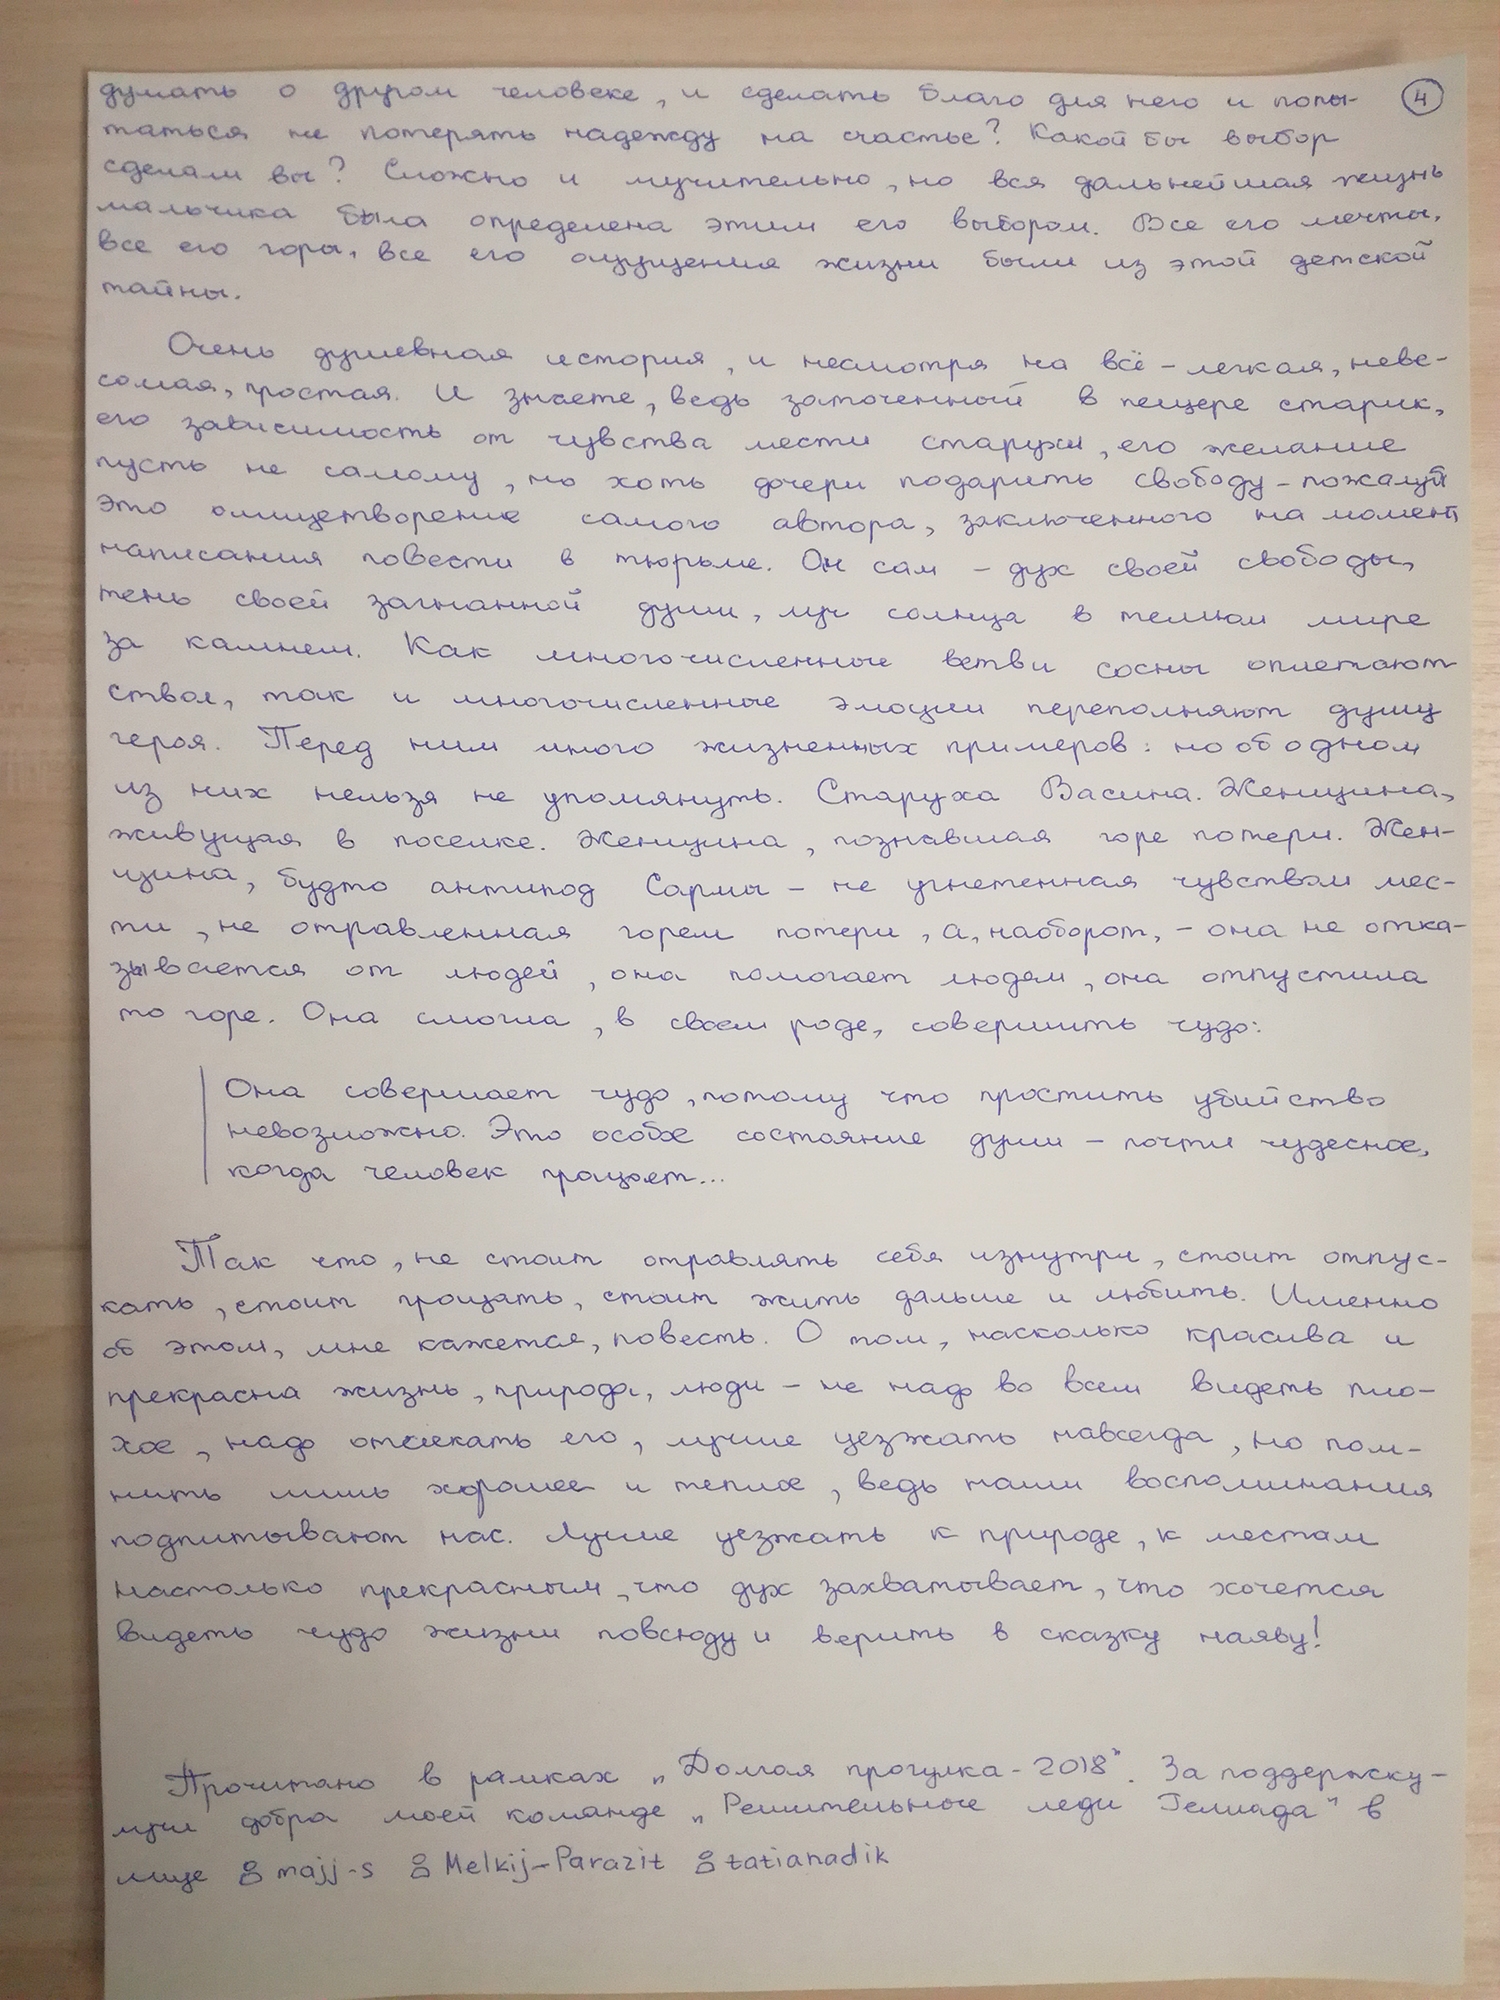 думать о другом человеке, и сделать благо для него и попы-
4
таться не потерять надежду на счастье? Какой бы выбор
сделали вы? Сложно и мучительно, но вся дальнейшая жизнь
мальчика была определена этим его выбором. Все его мечты,
все его горы, все его ощущения жизни были из этой детской
тайны.
Очень душевная история, и несмотря на всё - легкая, неве-
сомая, простая. И знаете, ведь заточенный в пещере старик,
его зависимость от чувства мести старухи, его желание
пусть не самому, но хоть дочери подарить свободу - пожалуй
это олицетворение самого автора, заключенного на момент
написания повести в тюрьме. Он сам - дух своей свободы,
тень своей загнанной души, луч солнца в темном мире
за камнем. Как многочисленные ветви сосны оплетают
ствол, так и многочисленные эмоции переполняют душу
героя. Перед ним много жизненных примеров: но об одном
из них нельзя не упомянуть. Старуха Васина. Женщина,
живущая в поселке. Женщина, познавшая горе потери. Жен-
щина, будто антипод Сармы - не угнетенная чувством мес-
ти, не отравленная горем потери, а, наоборот, - она не отка-
зывается от людей, она помогает людям, она отпустила
то горе. Она смогла, в своем роде, совершить чудо:
Она совершает чудо, потому что простить убийство
невозможно. Это особое состояние души - почти чудесное,
когда человек прощает...
Так что, не стоит отравлять себя изнутри, стоит отпус-
кать, стоит прощать, стоит жить дальше и любить. Именно
об этом, мне кажется, повесть. О том, насколько красива и
прекрасна жизнь, природа, люди - не надо во всем видеть пло-
хое, надо отсекать его, лучше уезжать навсегда, но пом-
нить лишь хорошее и теплое, ведь наши воспоминания
подпитывают нас. Лучше уезжать к природе, к местам
настолько прекрасным, что дух захватывает, что хочется
видеть чудо жизни повсюду и верить в сказку наяву!
Прочитано в рамках „Долгая прогулка - 2018". За поддержку -
лучи добра моей команде „Решительные леди Гелиада" в
лице majj-s Melkij-Parazit tatianadik